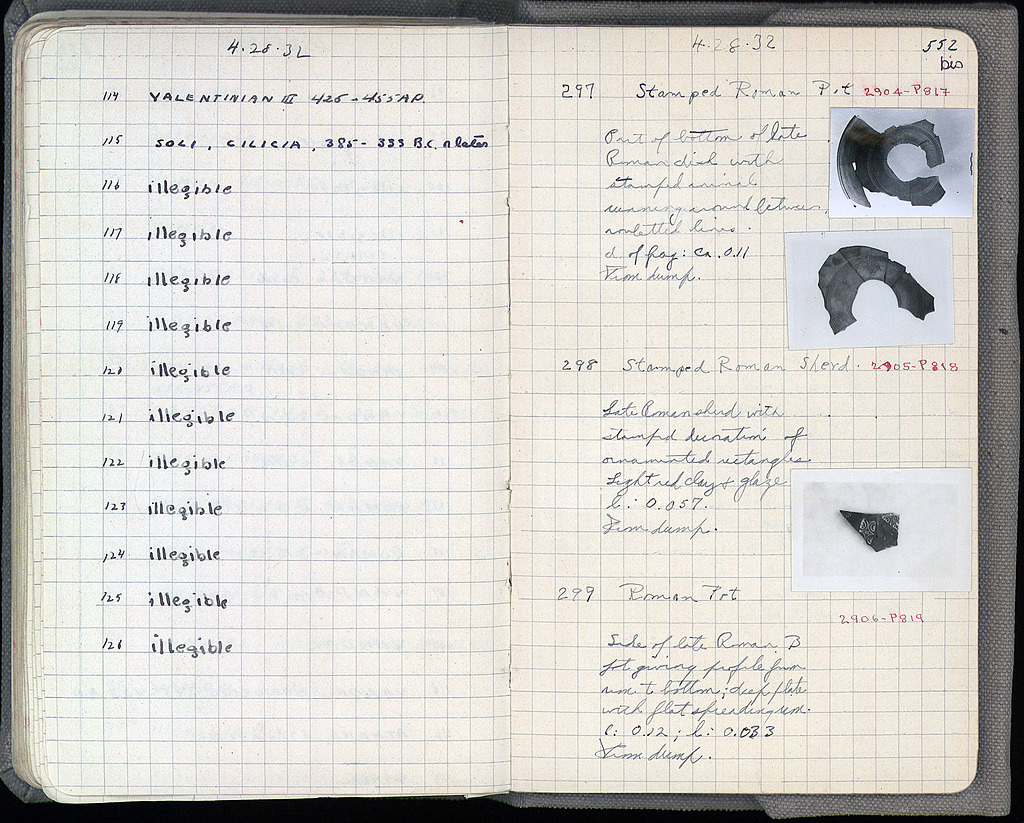 4.28.32
114 VALENTINIAN III 425-455 A.D.
115 SOLI, CILICIA, 385-333 B.C. or later
116 illegible
117 illegible
118 illegible
119 illegible
120 illegible
121 illegible
122 illegible
123 illegible
124 illegible
125 illegible
126 illegible
4.28.32
552
bis
297 Stamped Roman Pot 2904-P817
Part of bottom of late
Roman dish with
stamped animal
running around between
rouletted lines.
d. of frag: ca. 0.11
From dump.
298 Stamped Roman Sherd. 2905-P818
Late Roman sherd with
stamped decoration of
ornamented rectangles
Light red clay & glaze
l.: 0.057.
From dump.
299 Roman Pot
2906-P819
Side of late Roman B
pot giving profile from
rim to bottom; deep plate
with flat spreading rim.
0.12; h: 0.033
From dump.